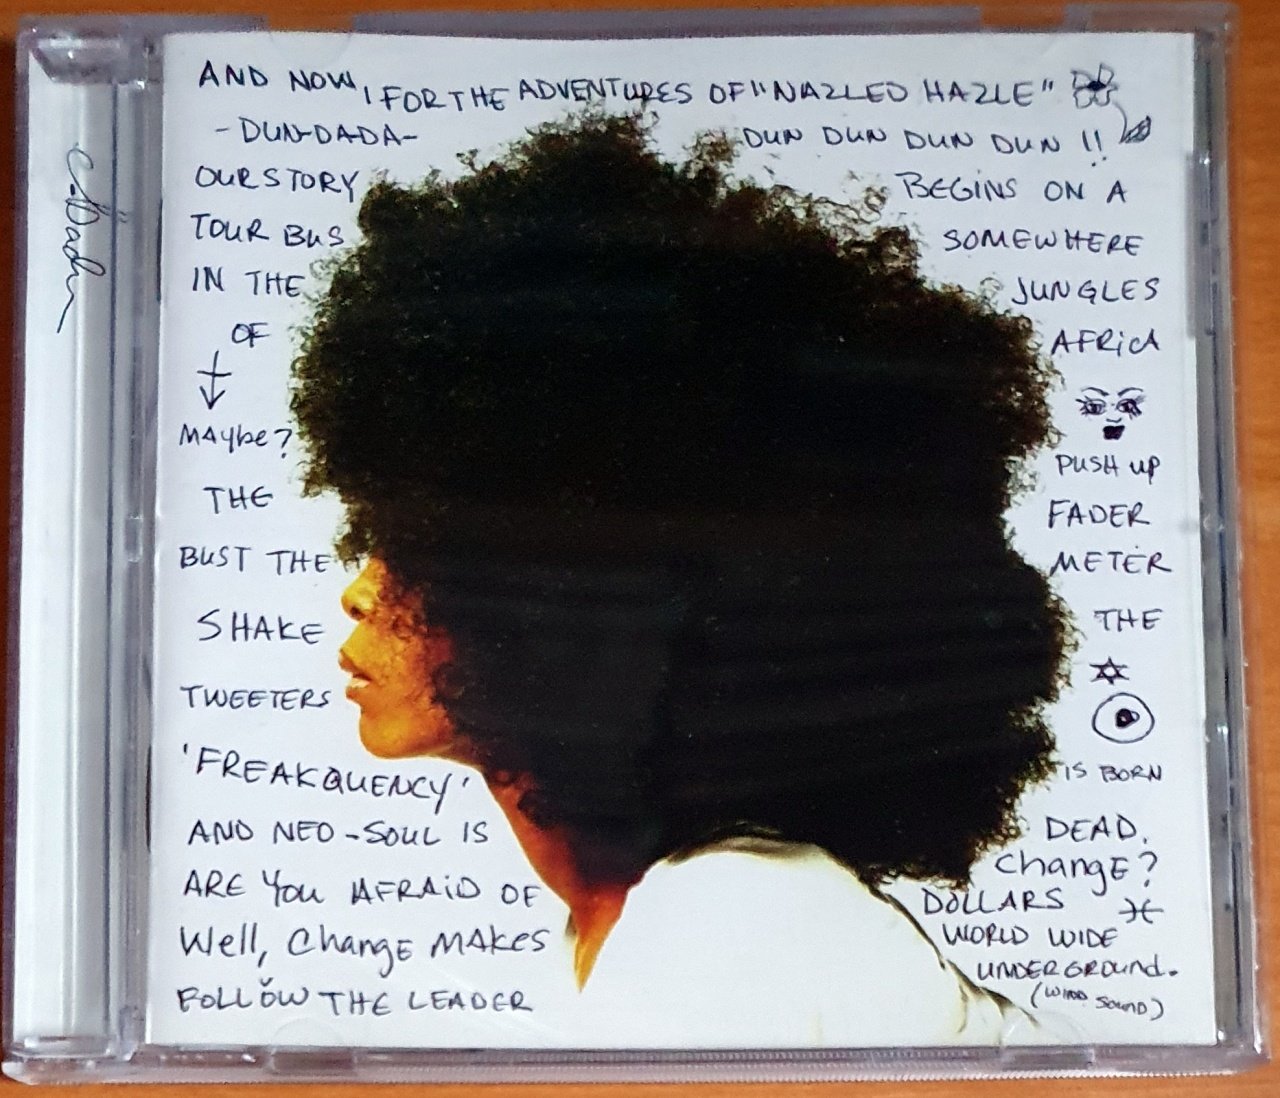 e. Badu
AND NOW, FOR THE ADVENTURES OF "NAZLED HAZLE"
-DUN-DADA- DUN DUN DUN DUN !!
OUR STORY BEGINS ON A
TOUR BUS SOMEWHERE
IN THE JUNGLES
OF AFRICA
MAYbe?
PUSH UP
THE FADER
BUST THE METER
SHAKE THE
TWEETERS
'FREAKQUENCY' IS BORN
AND NEO-SOUL IS DEAD.
ARE YOU AFRAID OF Change?
Well, Change MAKES DOLLARS
FOLLOW THE LEADER WORLD WIDE
UNDERGROUND.
(WIND SOUND)